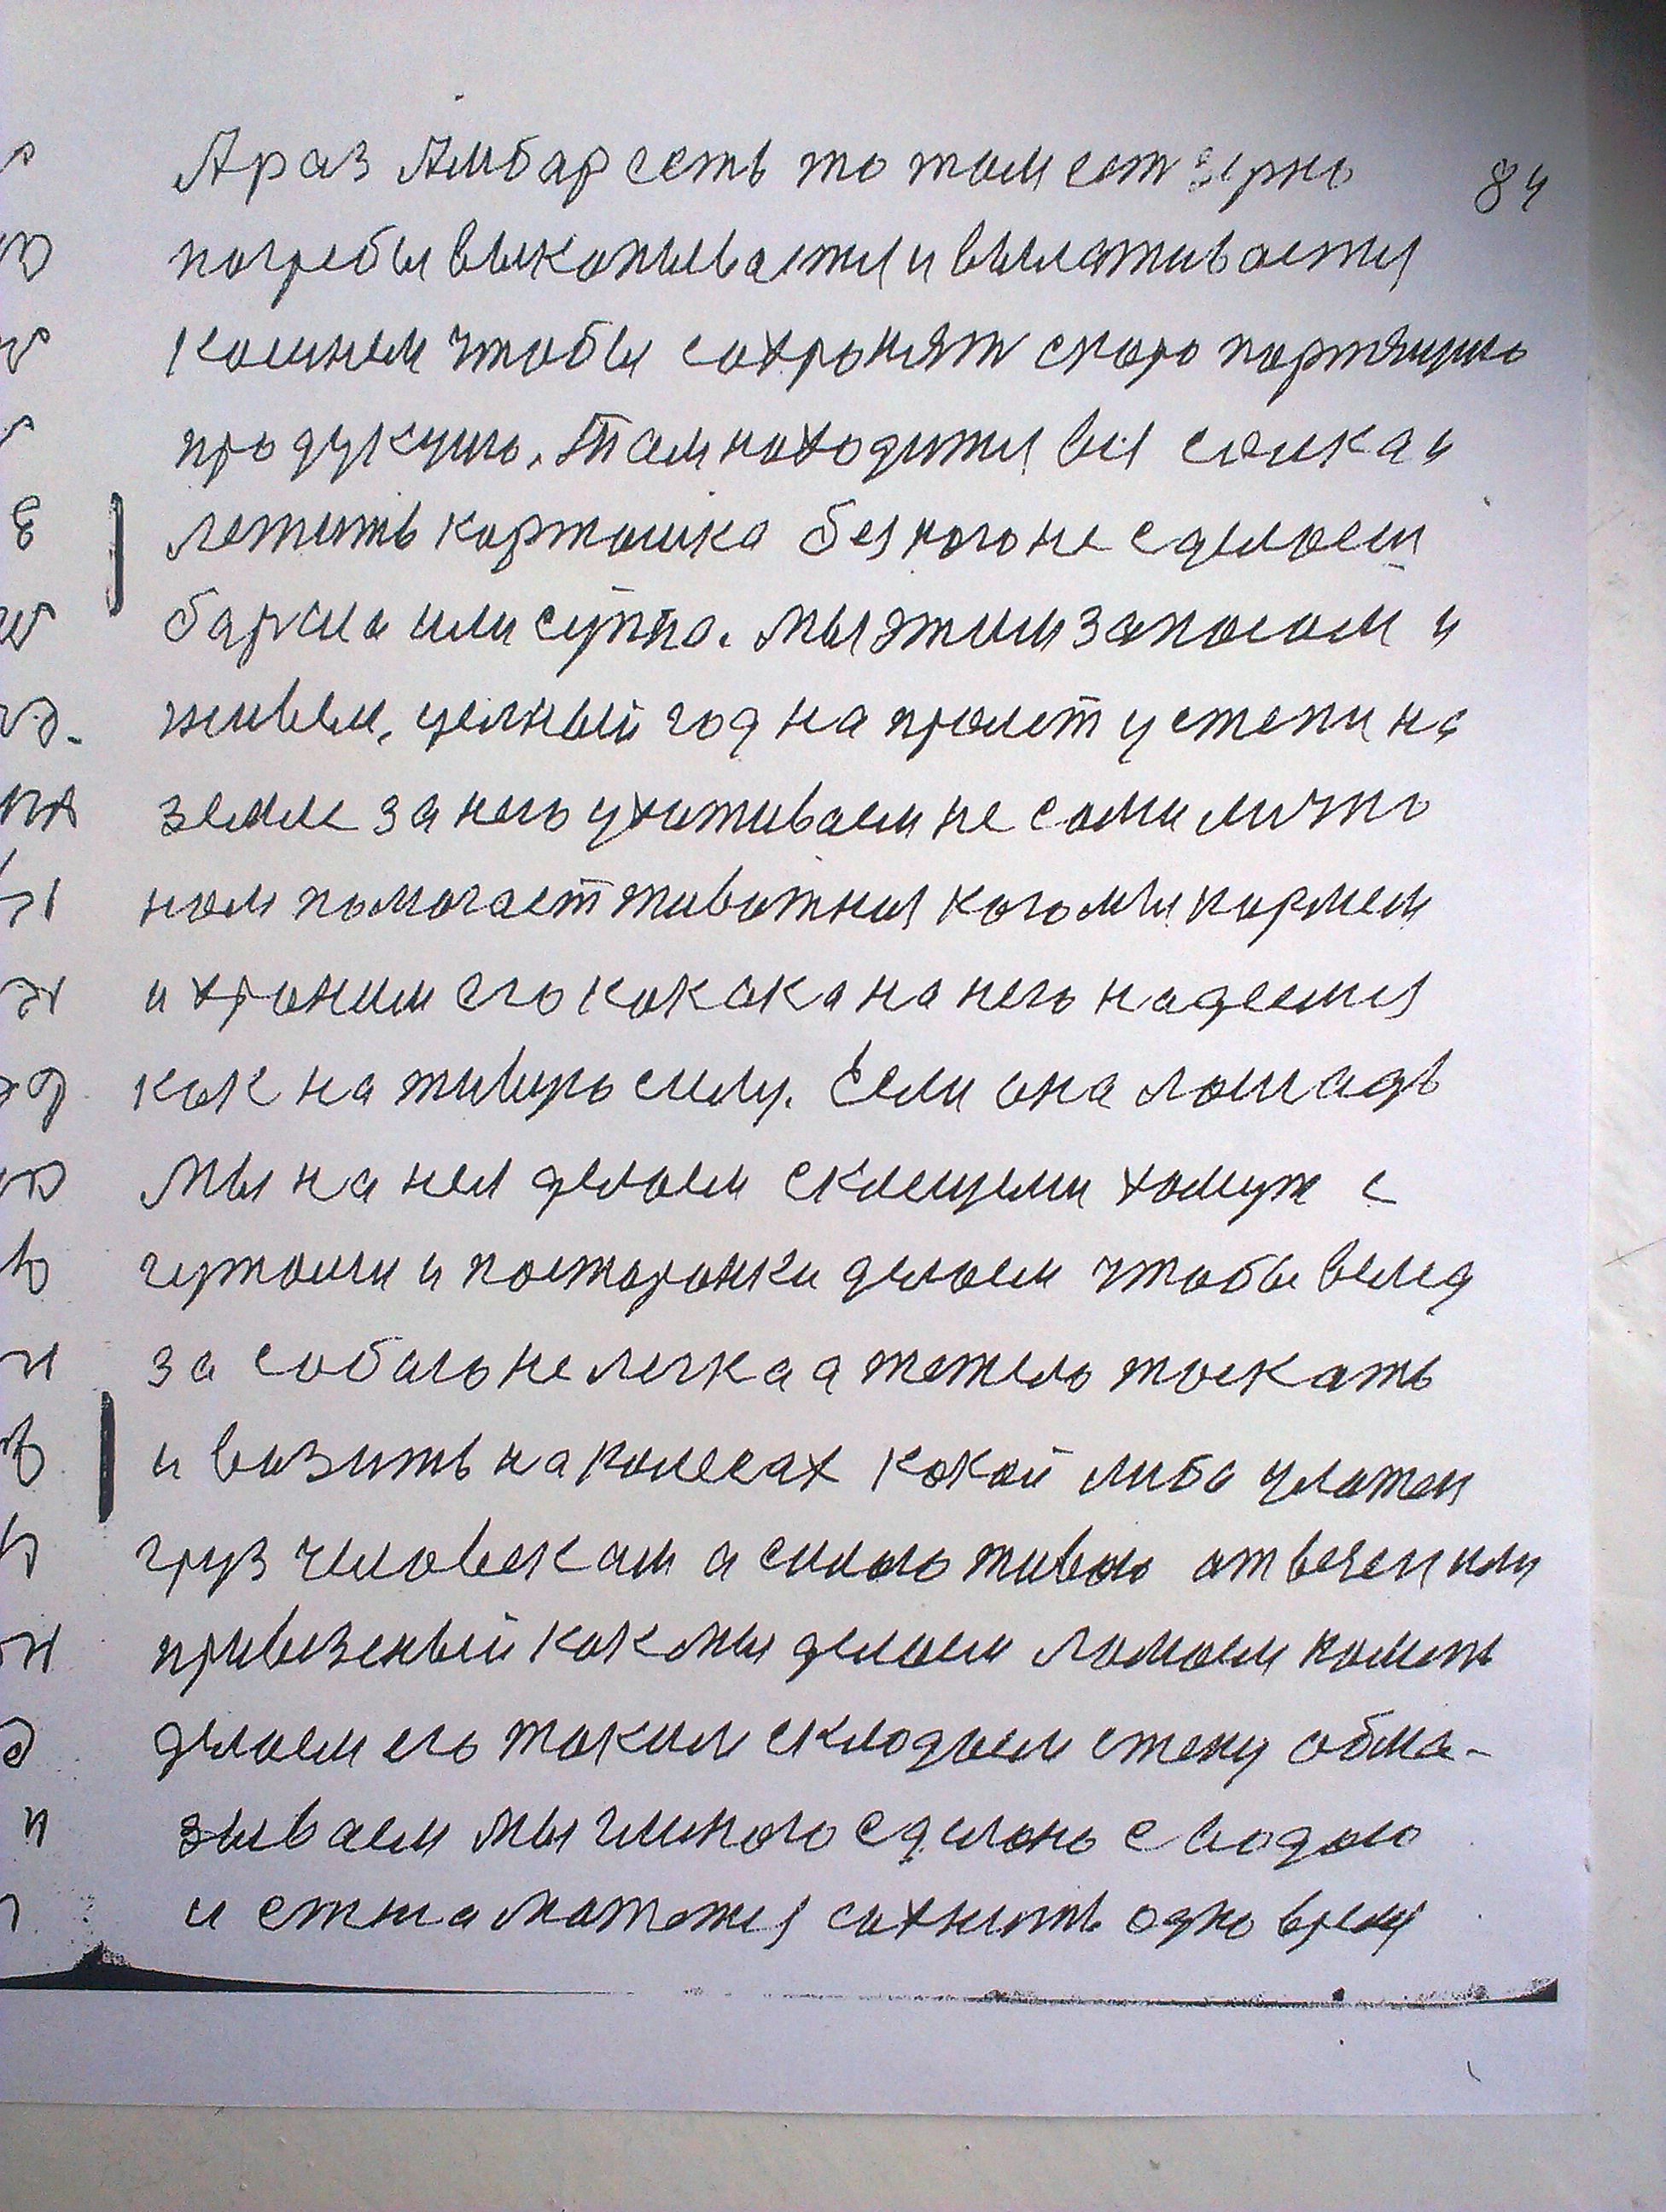 А раз Амбар есть то там ест зерно 84
погребы выкопывается и вылаживается
камнем чтобы сохронят скоро портящию
продукцию. Там находится вся соика и
лежить картошка без кого не сделаеш
барсча или супка. Мы этим запасом и
живем, целный год на пролет у степи на
земле за него ухаживаем не сами лично
нам помогает животная кого мы кормем
и храним его как ока на него надеемся
как на живую силу. Если она лошадь
Мы на неи делаем склещеми хомут с
гужоми и посторонки делаем чтобы вслед
за собаю не легка а тежело тоскать
и возить на колесах какой либа уложен
груз человекам а силою живою отвезен или
привезеный как мы делаем ломаем камень
делаем его таким склодаем стену обма-
зываем мы глиною сделоною с водою
и стена можется сохнить одно время